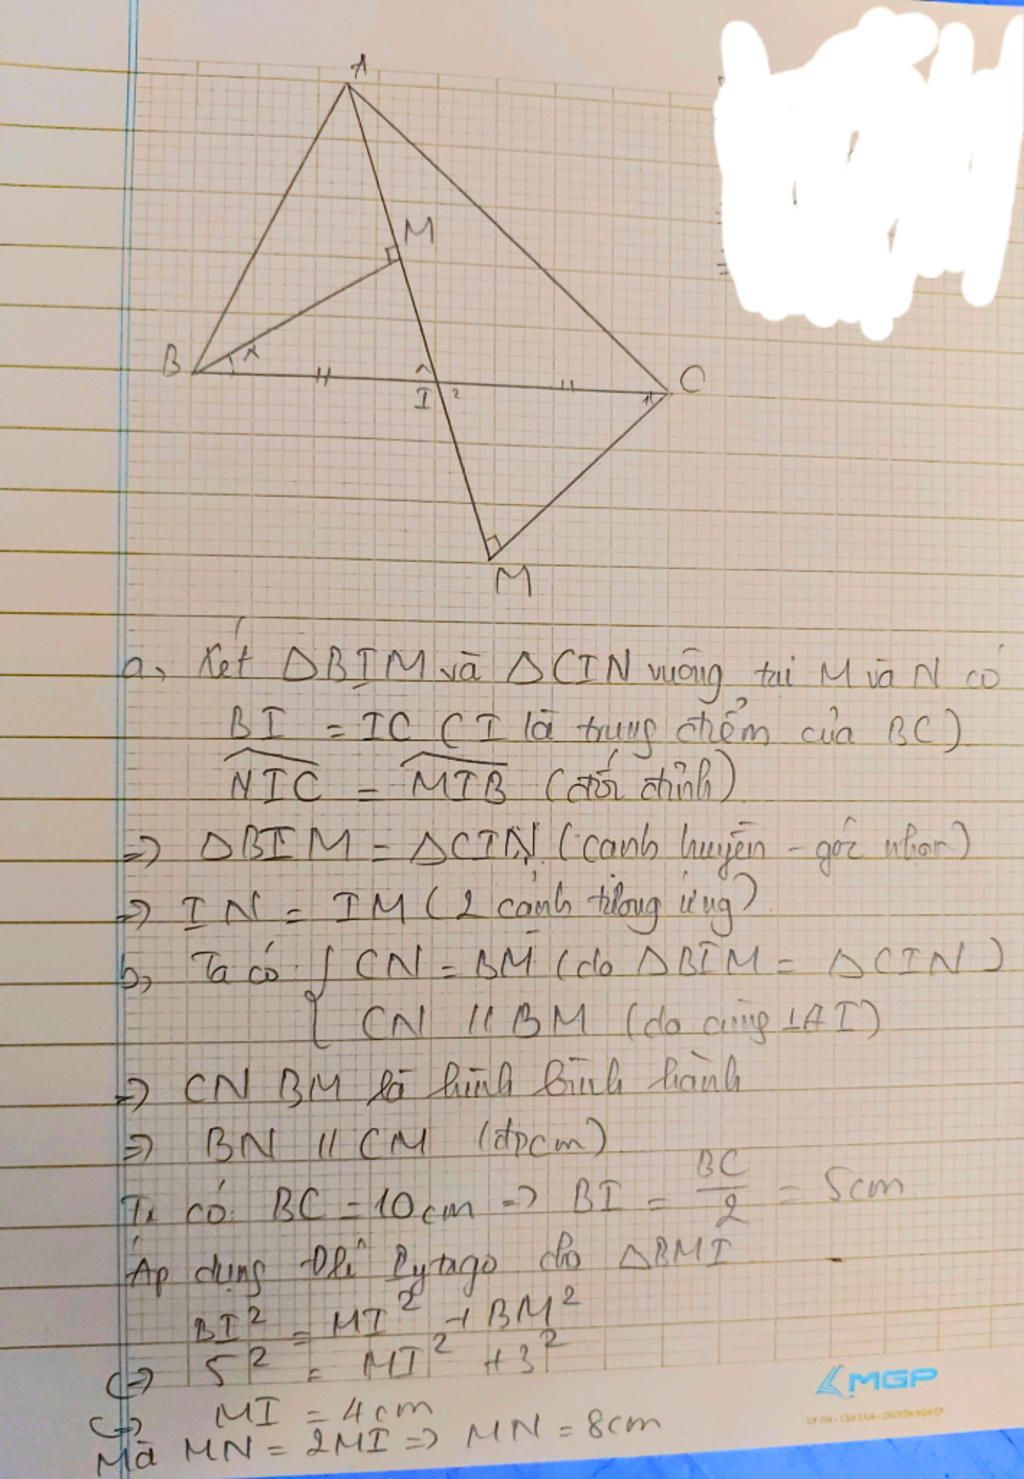 A
M
B
x
I
2
C
M
a, Xét ΔBIM và ΔCIN vuông tại M và N có
BI = IC (I là trung điểm của BC)
NIC = MIB (đối đỉnh)
=> ΔBIM = ΔCIN (cạnh huyền - góc nhọn)
=> IN = IM (2 cạnh tương ứng)
b, Ta có { CN = BM (do ΔBIM = ΔCIN)
CN // BM (do cùng ⊥AI)
=> CN BM là hình bình hành
=> BN // CM (đpcm)
Ta có: BC = 10cm => BI = BC/2 = 5cm
Áp dụng Đlí Pytago cho ΔBMI
BI² = MI² + BM²
<=> 5² = MI² + 3²
<=> MI = 4cm
Mà MN = 2MI => MN = 8cm
MGP
UY TÍN - TẬN TÂM - CHUYÊN NGHIỆP